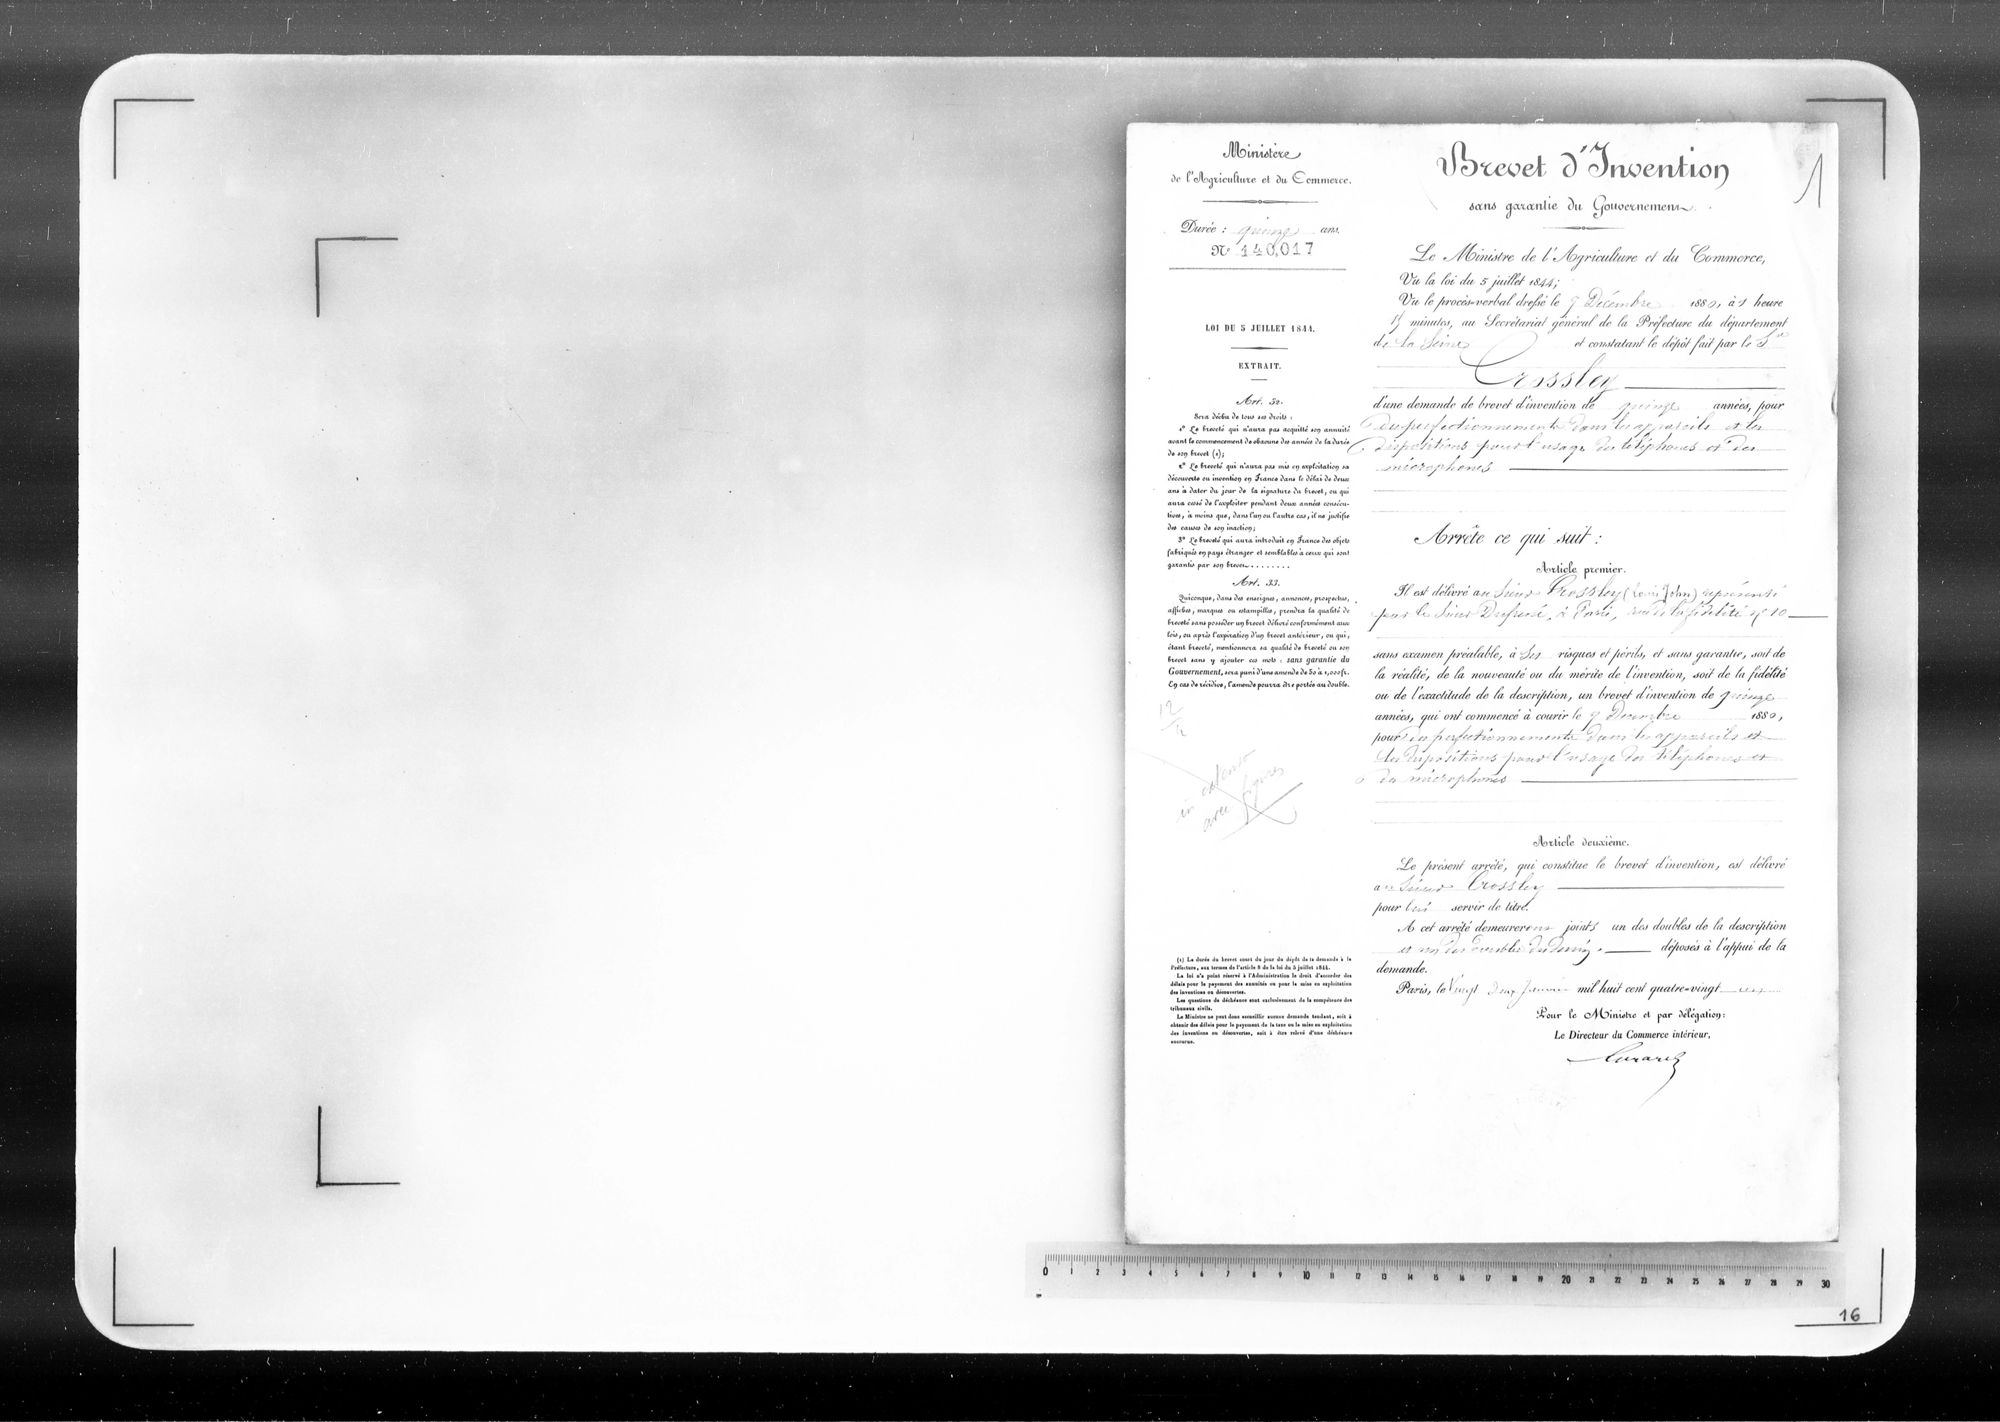 Ministère
de l'Agriculture et du Commerce.
Durée : quinze ans.
N° 140,017
LOI DU 5 JUILLET 1844.
EXTRAIT.
Art. 32.
Sera déchu de tous ses droits :
1° Le breveté qui n'aura pas acquitté son annuité
avant le commencement de chacune des années de la durée
de son brevet (1);
2° Le breveté qui n'aura pas mis en exploitation sa
découverte ou invention en France dans le délai de deux
ans à dater du jour de la signature du brevet, ou qui
aura cessé de l'exploiter pendant deux années consécu-
tives, à moins que, dans l'un ou l'autre cas, il ne justifie
des causes de son inaction;
3° Le breveté qui aura introduit en France des objets
fabriqués en pays étranger et semblables à ceux qui sont
garantis par son brevet........
Art. 33.
Quiconque, dans des enseignes, annonces, prospectus,
affiches, marques ou estampilles, prendra la qualité de
breveté sans posséder un brevet délivré conformément aux
lois, ou après l'expiration d'un brevet antérieur, ou qui,
étant breveté, mentionnera sa qualité de breveté ou son
brevet sans y ajouter ces mots : sans garantie du
Gouvernement, sera puni d'une amende de 50 à 1,000 fr.
En cas de récidive, l'amende pourra être portée au double.
12
in extenso
avec figures
(1) La durée du brevet court du jour du dépôt de la demande à la
Préfecture, aux termes de l'article 8 de la loi du 5 juillet 1844.
La loi n'a point réservé à l'Administration le droit d'accorder des
délais pour le payement des annuités ou pour la mise en exploitation
des inventions ou découvertes.
Les questions de déchéance sont exclusivement de la compétence des
tribunaux civils.
Le Ministre ne peut donc accueillir aucune demande tendant, soit à
obtenir des délais pour le payement de la taxe ou la mise en exploitation
des inventions ou découvertes, soit à être relevé d'une déchéance
encourue.
Brevet d'Invention
1
sans garantie du Gouvernement.
Le Ministre de l'Agriculture et du Commerce,
Vu la loi du 5 juillet 1844;
Vu le procès-verbal dressé le 9 Décembre 1880, à 1 heure
minutes, au Secrétariat général de la Préfecture du département
de la Seine et constatant le dépôt fait par le Sr
Crossley
d'une demande de brevet d'invention de quinze années, pour
des perfectionnements dans les appareils et les
dispositions pour l'usage des téléphones et des
microphones
Arrête ce qui suit :
Article premier.
Il est délivré au Sieur Crossley (Louis John) représenté
par le Sieur Dufrené, à Paris, rue de la fidélité n° 10
sans examen préalable, à ses risques et périls, et sans garantie, soit de
la réalité, de la nouveauté ou du mérite de l'invention, soit de la fidélité
ou de l'exactitude de la description, un brevet d'invention de quinze
années, qui ont commencé à courir le 9 Décembre 1880,
pour des perfectionnements dans les appareils et
les dispositions pour l'usage des téléphones et
des microphones
Article deuxième.
Le présent arrêté, qui constitue le brevet d'invention, est délivré
au Sieur Crossley
pour lui servir de titre.
A cet arrêté demeureront joints un des doubles de la description
et un des doubles du dessin déposés à l'appui de la
demande.
Paris, le Vingt deux Janvier mil huit cent quatre-vingt un
Pour le Ministre et par délégation:
Le Directeur du Commerce intérieur,
0 1 2 3 4 5 6 7 8 9 10 11 12 13 14 15 16 17 18 19 20 21 22 23 24 25 26 27 28 29 30
16